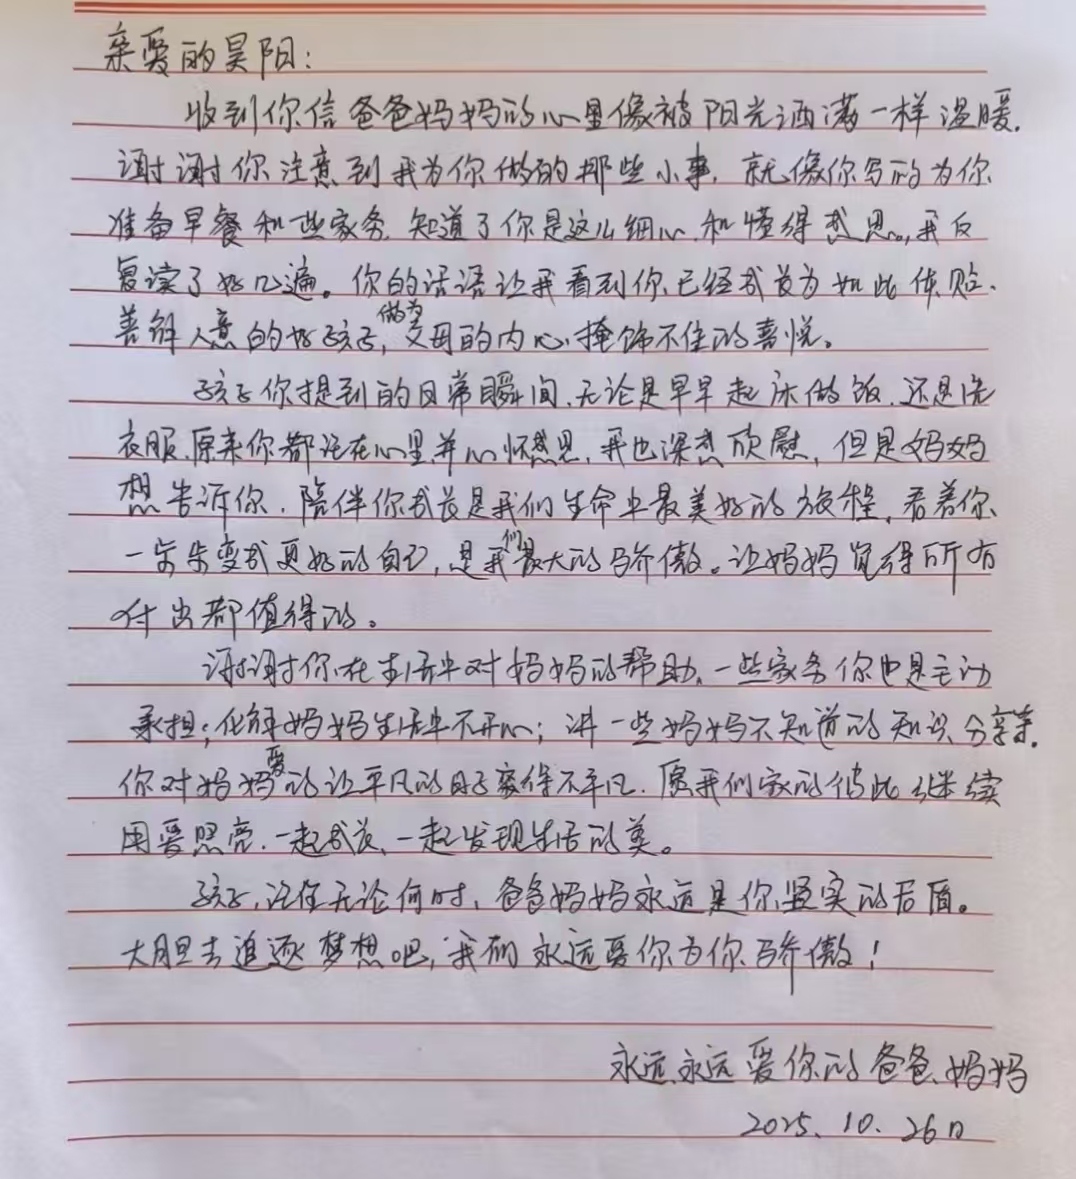 亲爱的昊阳：
收到你信爸爸妈妈的心里像被阳光洒满一样温暖.
谢谢你注意到我为你做的那些小事，就像你写的为你
准备早餐和一些家务.知道了你是这么细心.和懂得感恩。,我反
复读了好几遍。你的话语让我看到你已经成长为如此体贴.
善解人意的好孩子,做为父母的内心,掩饰不住的喜悦。
孩子你提到的日常瞬间.无论是早早起床做饭.还是洗
衣服.原来你都记在心里并心怀感恩,我也深感欣慰,但是妈妈
想告诉你.陪伴你成长是我们生命中最美好的旅程,看着你
一步步变成更好的自己,是我们最大的骄傲。让妈妈觉得所有
付出都值得的。
谢谢你在生活中对妈妈的帮助、一些家务你也是主动
承担;化解妈妈生活中不开心;讲一些妈妈不知道的知识分享等.
你对妈妈爱的让平凡的日子变得不平凡.愿我们家的彼此继续
用爱照亮.一起成长、一起发现生活的美。
孩子,记住无论何时,爸爸妈妈永远是你坚实的后盾。
大胆去追逐梦想吧,我们永远爱你为你骄傲!
永远永远爱你的爸爸、妈妈
2025.10.26日